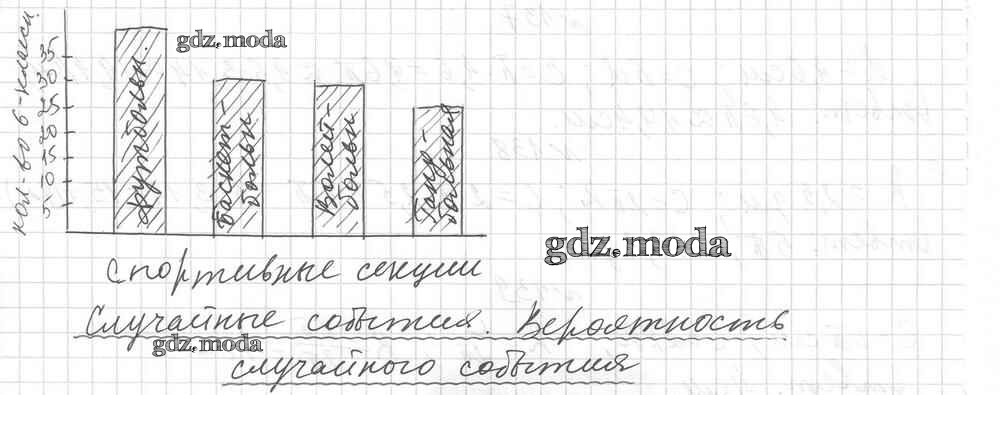 кол-во 6-класси.
35
30
25
20
15
10
5
футбольн.
баскет-
больн.
Волей-
больн.
Ганд-
больная
gdz.moda
gdz.moda
Спортивные секции
Случайные события. Вероятность
gdz.moda
случайного события